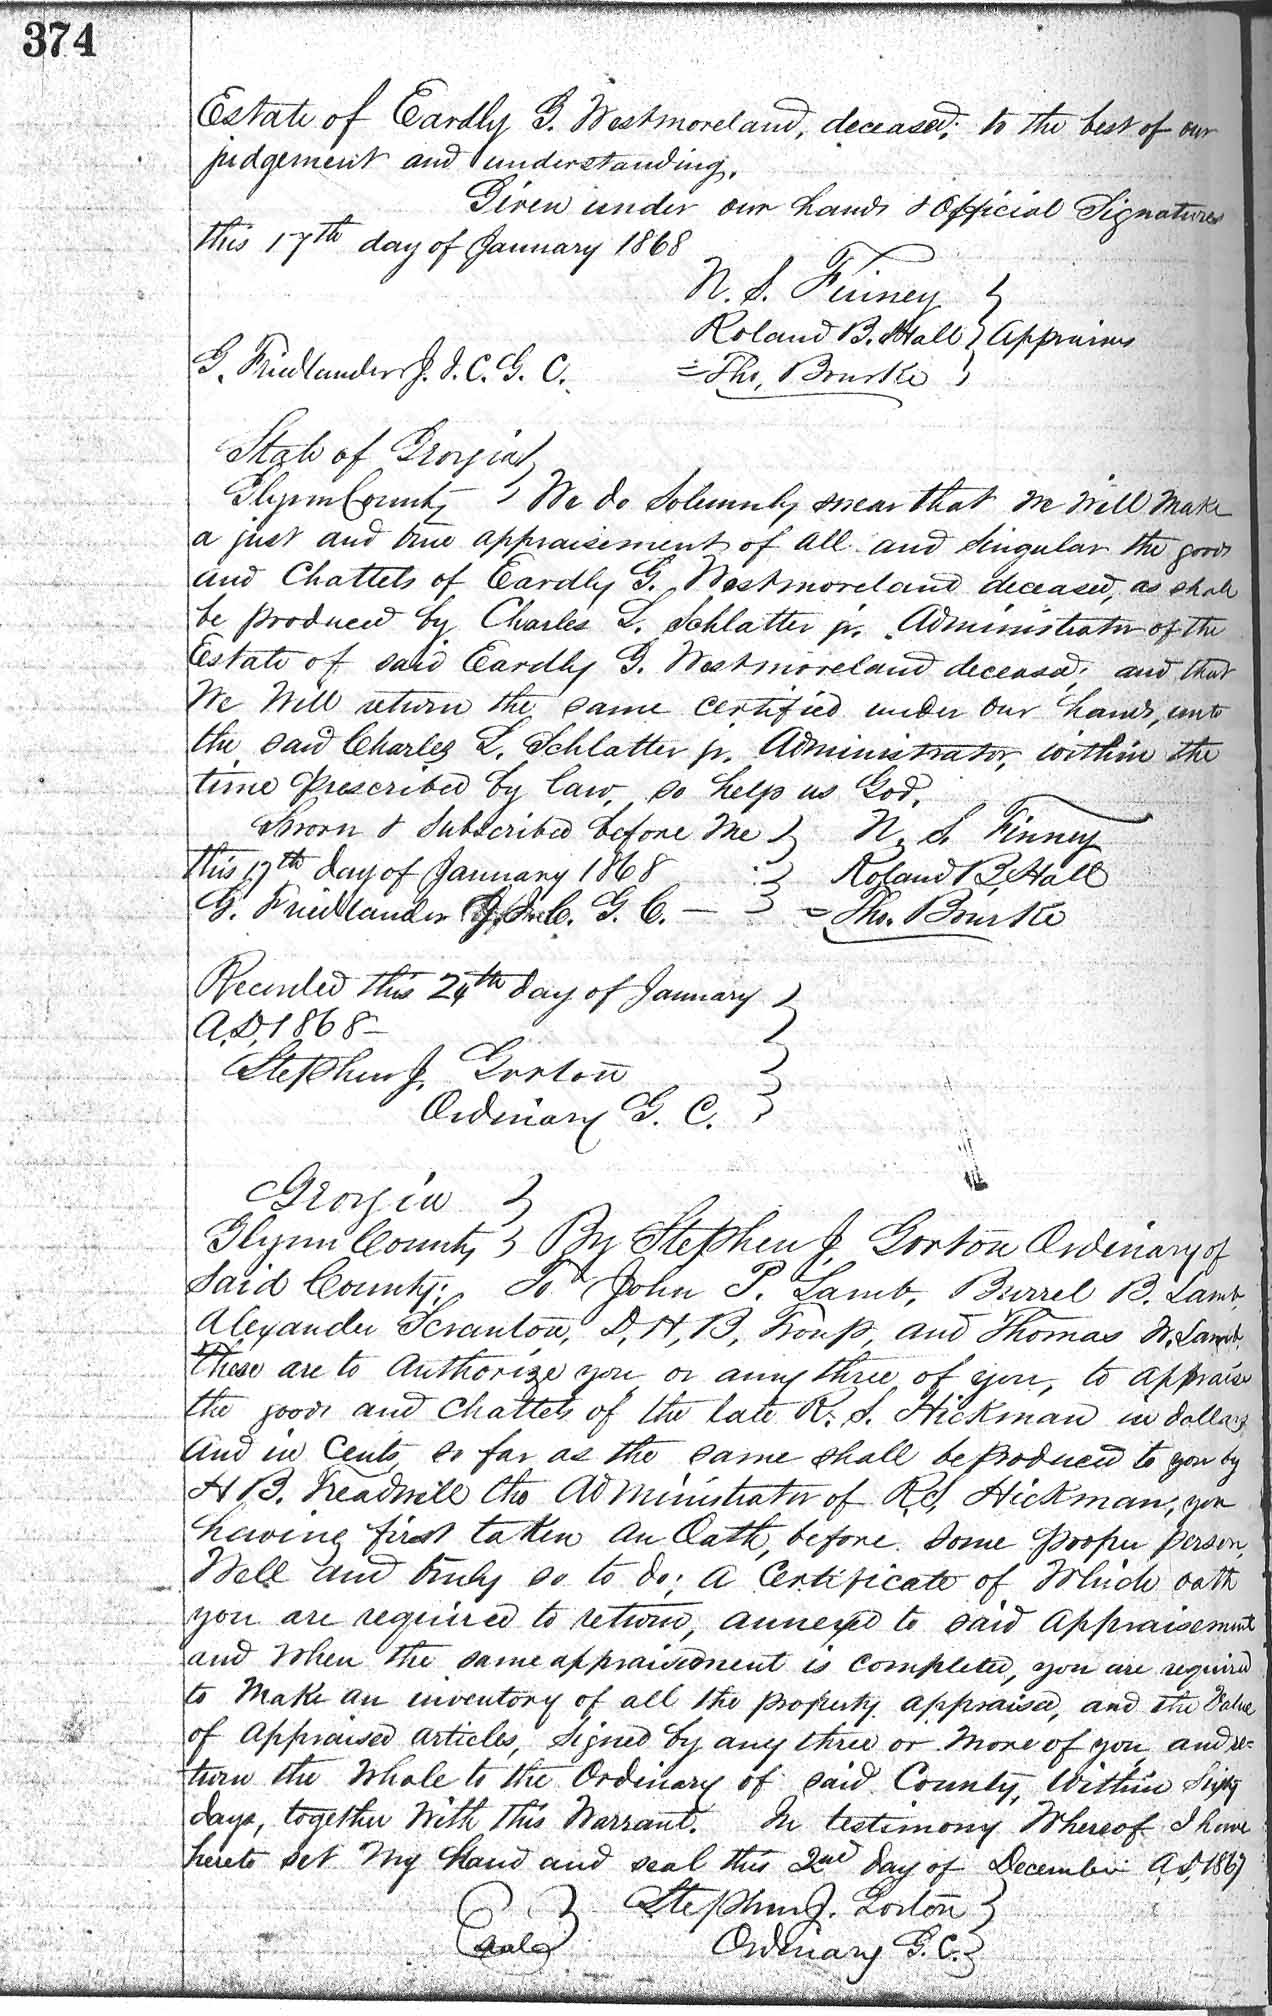 374
Estate of Eardly G. Westmoreland, deceased; to the best of our
judgement and understanding.
Given under our hands & official Signatures
this 17th day of January 1868
N. S. Finney
Roland B. Hall } Appraisers
G. Friedlander J. I. C. G. C. = Tho. Bourke
State of Georgia }
Glynn County } We do Solemnly swear that we will make
a just and true appraisement of all and Singular the goods
and Chattels of Eardly G. Westmoreland deceased, as shall
be produced by Charles L. Schlatter jr. Administrator of the
Estate of said Eardly G. Westmoreland deceased; and that
We Will return the same certified under our hands, unto
the said Charles L. Schlatter jr. Administrator, within the
time prescribed by law, so help us God.
Sworn & Subscribed before me } N. S. Finney
this 17th day of January 1868 } Roland B. Hall
G. Friedlander J. I. C. G. C. — } = Tho. Bourke
Recorded this 24th day of January }
A.D. 1868 –
Stephen J. Gorton
Ordinary G. C.
Georgia }
Glynn County } By Stephen J. Gorton Ordinary of
Said County; To John P. Lamb, Burrel B. Lamb
Alexander Scranton, D. H. B. Troup, and Thomas W. Lamb.
These are to Authorize you or any three of you, to appraise
the goods and chattels of the late R. S. Hickman in dollars
and in Cents, so far as the same shall be produced to you by
H B. Treadwell the Administrator of R. S. Hickman; you
having first taken an Oath, before some proper person,
Well and truly so to do; a Certificate of Which oath
you are required to return, annexed to said Appraisement
and when the same appraisement is completed, you are required
to Make an inventory of all the property appraised, and the Value
of Appraised articles, Signed by any three or more of you and re=
turn the Whole to the Ordinary of said County, Within Sixty
days, together With this Warrant. In testimony Whereof I have
hereto set my Hand and seal this 2nd day of December A.D. 1867
Stephen J. Gorton }
Seal Ordinary G. C. }